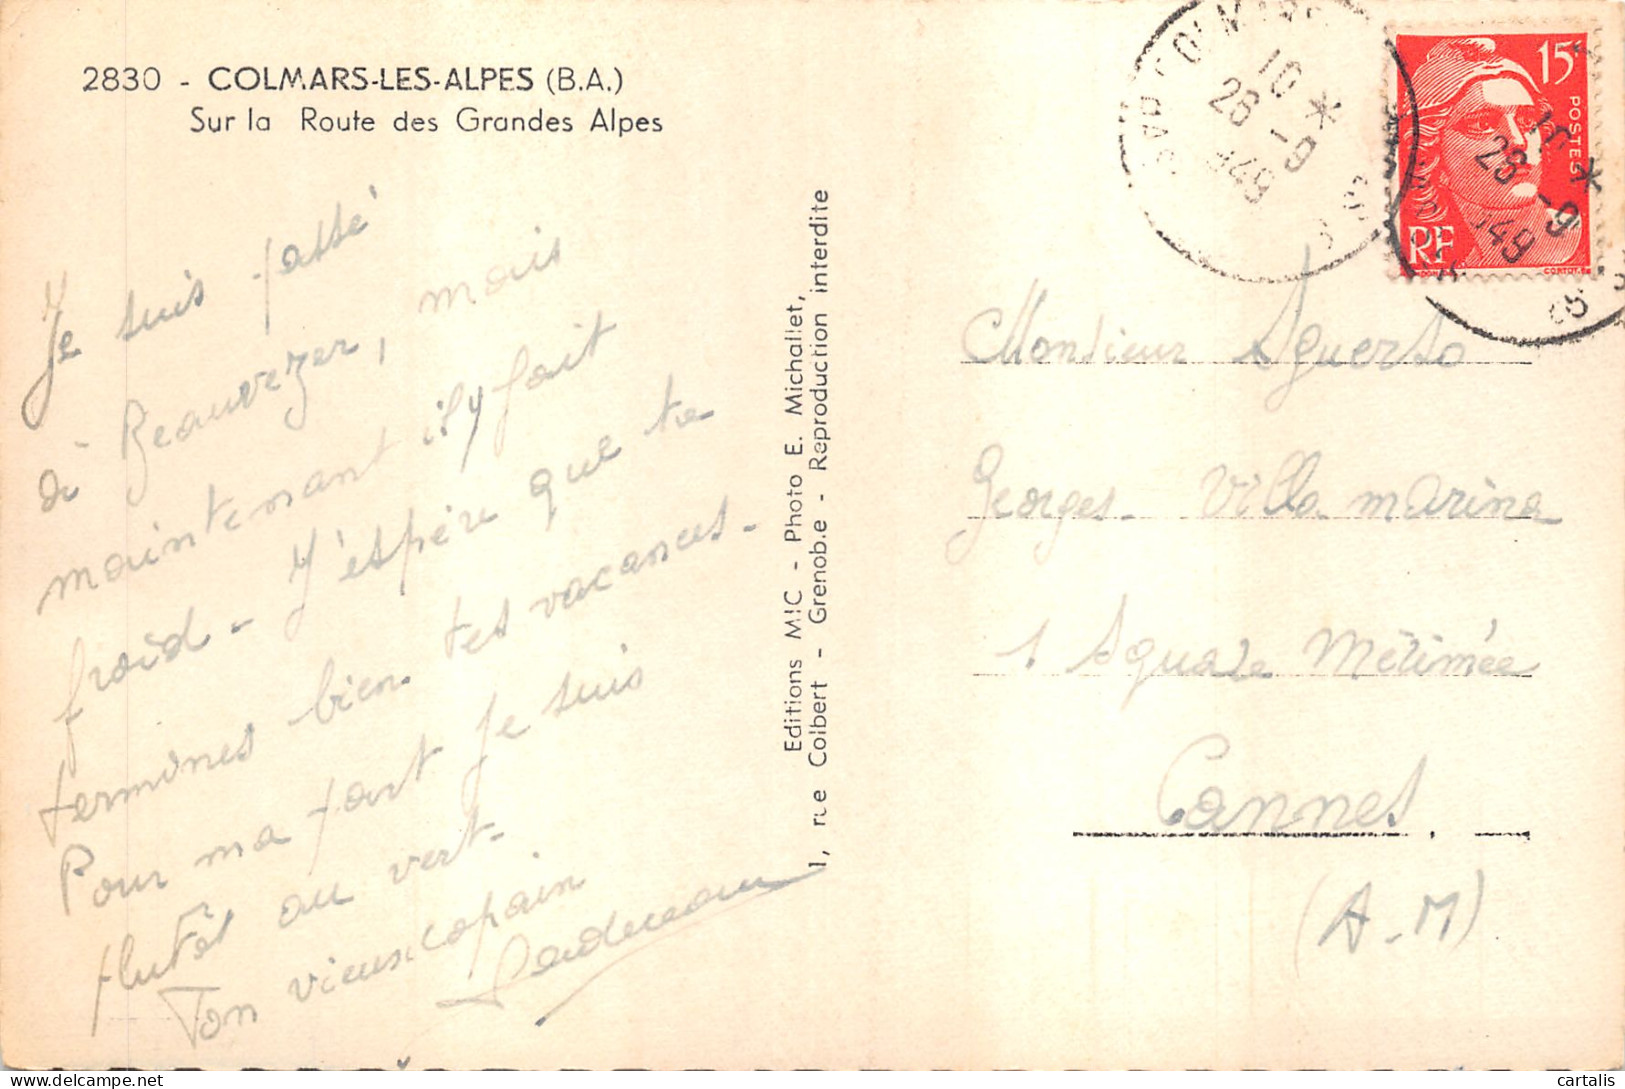 2830 - COLMARS-LES-ALPES (B.A.)
Sur la Route des Grandes Alpes
Je suis passé
à Beauvezer, mais
maintenant il y fait
froid - J'espère que tu
termines bien tes vacances -
Pour ma part je suis
plutôt au vert -
Ton vieux copain
Editions MIC - Photo E. Michallet,
1, rue Colbert - Grenoble - Reproduction interdite
COLMARS
10 *
28 -9
1949
15F
POSTES
RF
CORTOT
10 *
28 -9
1949
Monsieur Aguerso
Georges - Villa marina
1 Square Mérimée
Cannes
(A-M)
cartalis